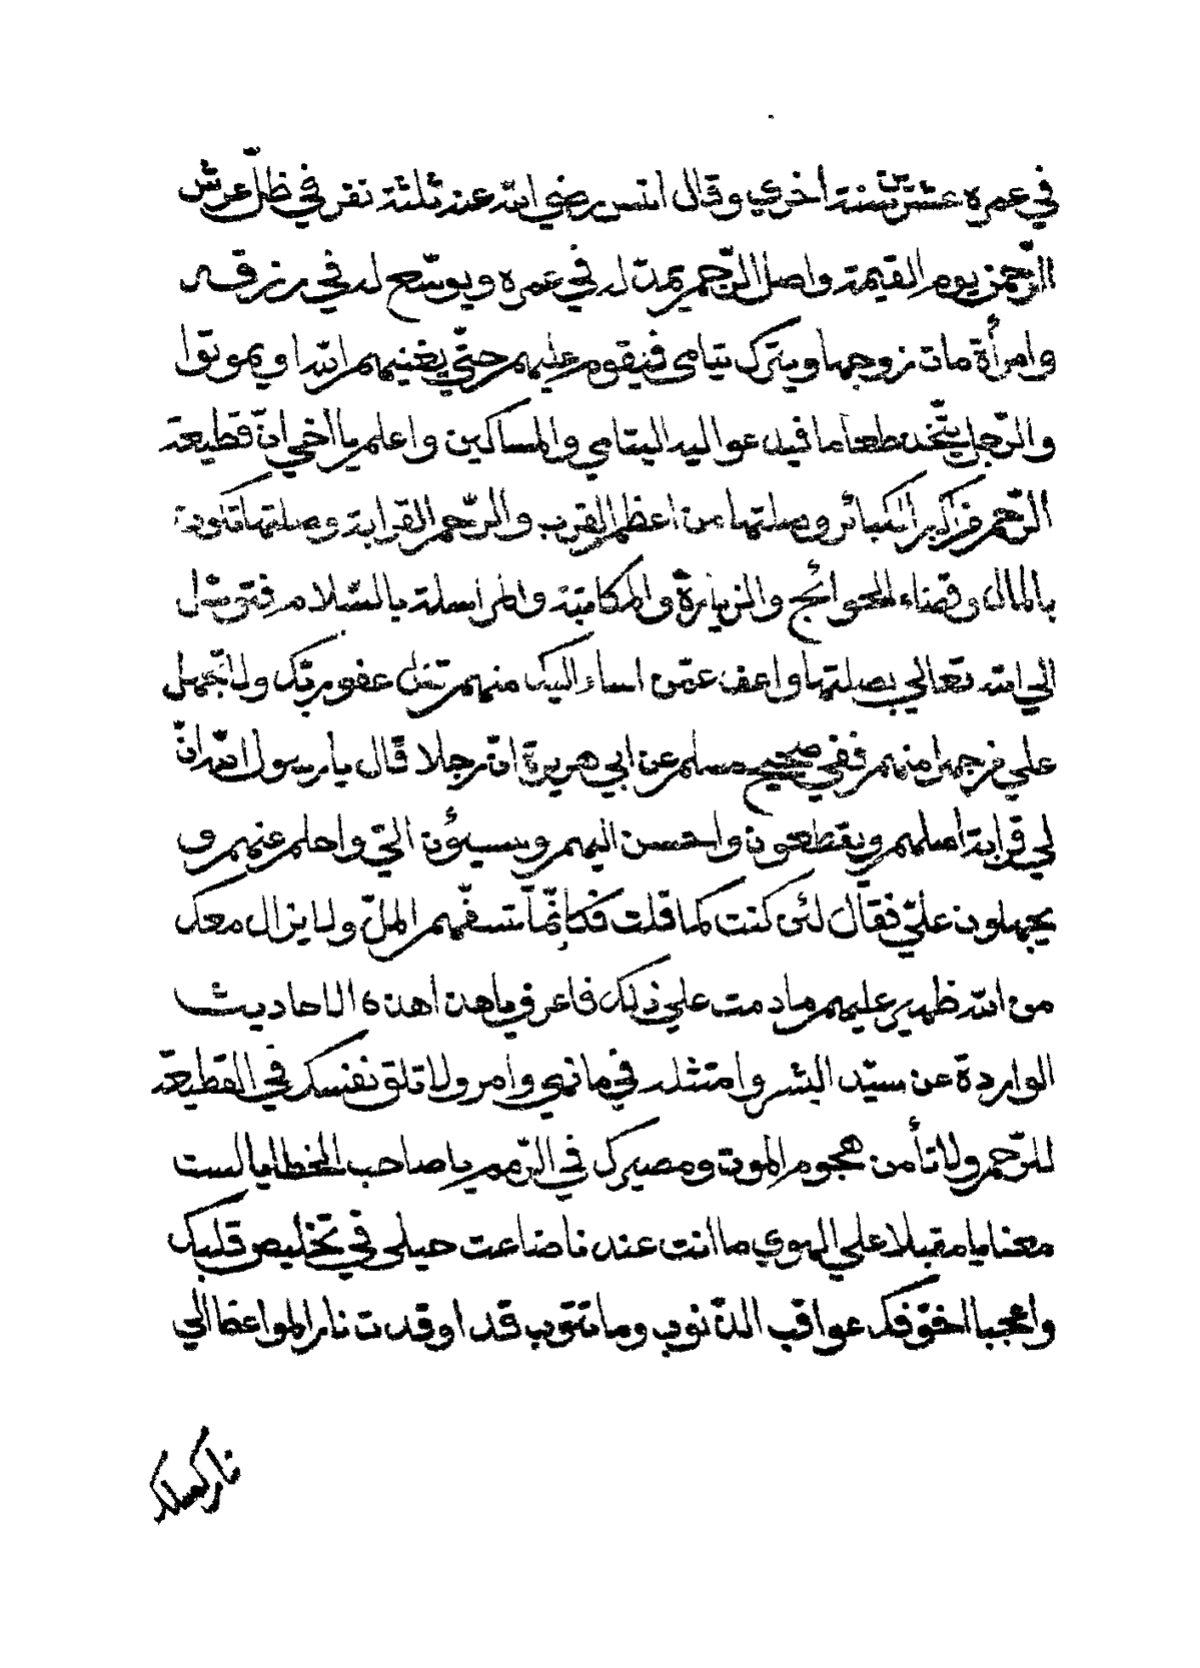 في عمره عشرين سنة اخري وقال انس رضي الله عنه ثلثة نفر في ظلّ عرش
الرّحمن يوم القيمة واصل الرّحم يمدّ له في عمره ويوسّع له في رزقه
وامرأة مات زوجها ويترك يتامى فيقوم عليهم حتّي يغنيهم الله او يموتوا
والرّجل يتّخذ طعاما فيدعوا اليه اليتامي والمساكين واعلم يا اخي انّ قطيعة
الرّحم من اكبر الكبائر وصلتها من اعظم القرب والرّحم القرابة وصلتها تكون
بالمال وقضاء الحوائج والزيارة والمكاتبة والمراسلة بالسّلام فتوسّل
الي الله تعالي بصلتها واعف عمّن اساء اليك منهم تنل عفو ربّك ولا تجهل
علي من جهل منهم ففي صحيح مسلم عن ابي هريرة انّ رجلا قال يا رسول الله انّ
لي قرابة اصلهم ويقطعون واحسن اليهم ويسيؤن اليّ واحلم عنهم و
يجهلون عليّ فقال لئن كنت كما قلت فكانّما تسفّهم الملّ ولا يزال معك
من الله ظهير عليهم ما دمت علي ذلك فاعرف يا هذا هذه الاحاديث
الواردة عن سيّد البشر وامتثله في ما نهي وامر ولا تلق نفسك في القطيعة
للرّحم ولا تأمن هجوم الموت ومصيرك في الرّمم يا صاحب الخطايا لست
معنا يا مقبلا علي الهوي ما انت عندنا ضاعت حيلى في تخليص قلبك
واعجبا اخوّفك عواقب الذّنوب وما تتوب قد اوقدت نار المواعظ الي